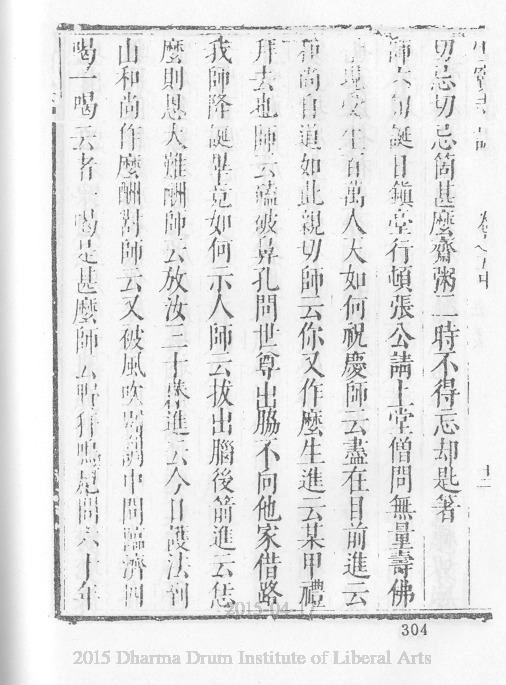 切忌切忌箇甚麼齋粥二時不得忘却匙筯
師六旬誕日鎮堂行頓張公請上堂僧問無量壽佛
現堂生百萬人天如何祝慶師云盡在目前進云
和尚自道如此親切師云你又作麼生進云某甲禮
拜去也師云磕破鼻孔問世尊出脇不向他家借路
我師降誕畢竟如何示人師云拔出腦後箭進云恁
麼則恩大難酬師云放汝三十棒進云今日護法
山和尚作麼酬對師云又被風吹別調中問臨濟四
喝一喝云者一喝是甚麼師云 問六十年
十二
2015-04-17
304
2015 Dharma Drum Institute of Liberal Arts